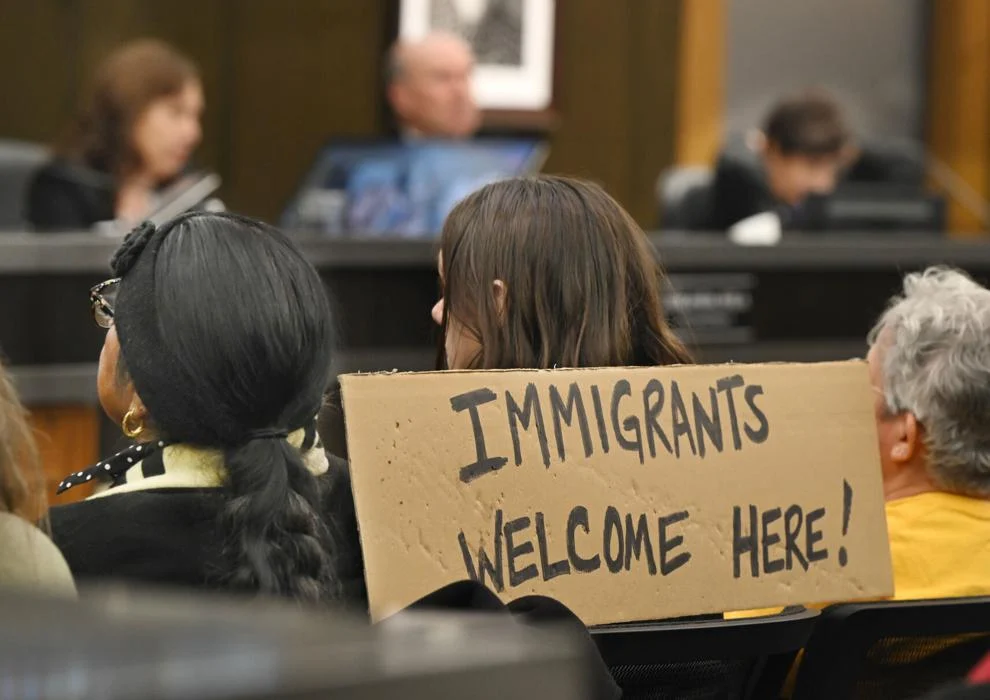 IMMIGRANTS
WELCOME HERE!